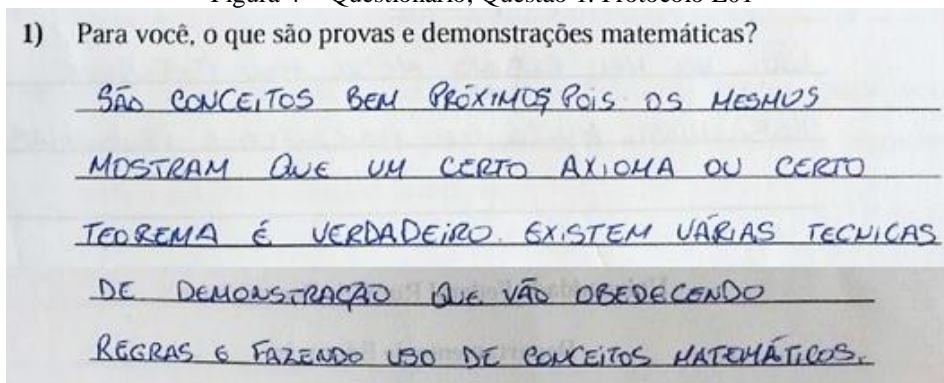 Figura 4 – Questionário, Questão 1: Protocolo E01
1) Para você, o que são provas e demonstrações matemáticas?
SÃO CONCEITOS BEM PRÓXIMOS POIS OS MESMOS
MOSTRAM QUE UM CERTO AXIOMA OU CERTO
TEOREMA É VERDADEIRO. EXISTEM VÁRIAS TECNICAS
DE DEMONSTRAÇÃO QUE VÃO OBEDECENDO
REGRAS E FAZENDO USO DE CONCEITOS MATEMÁTICOS.